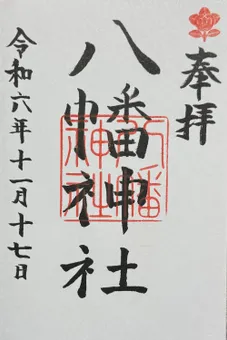 奉拝
八幡神社
八幡神社
令和六年十一月十七日